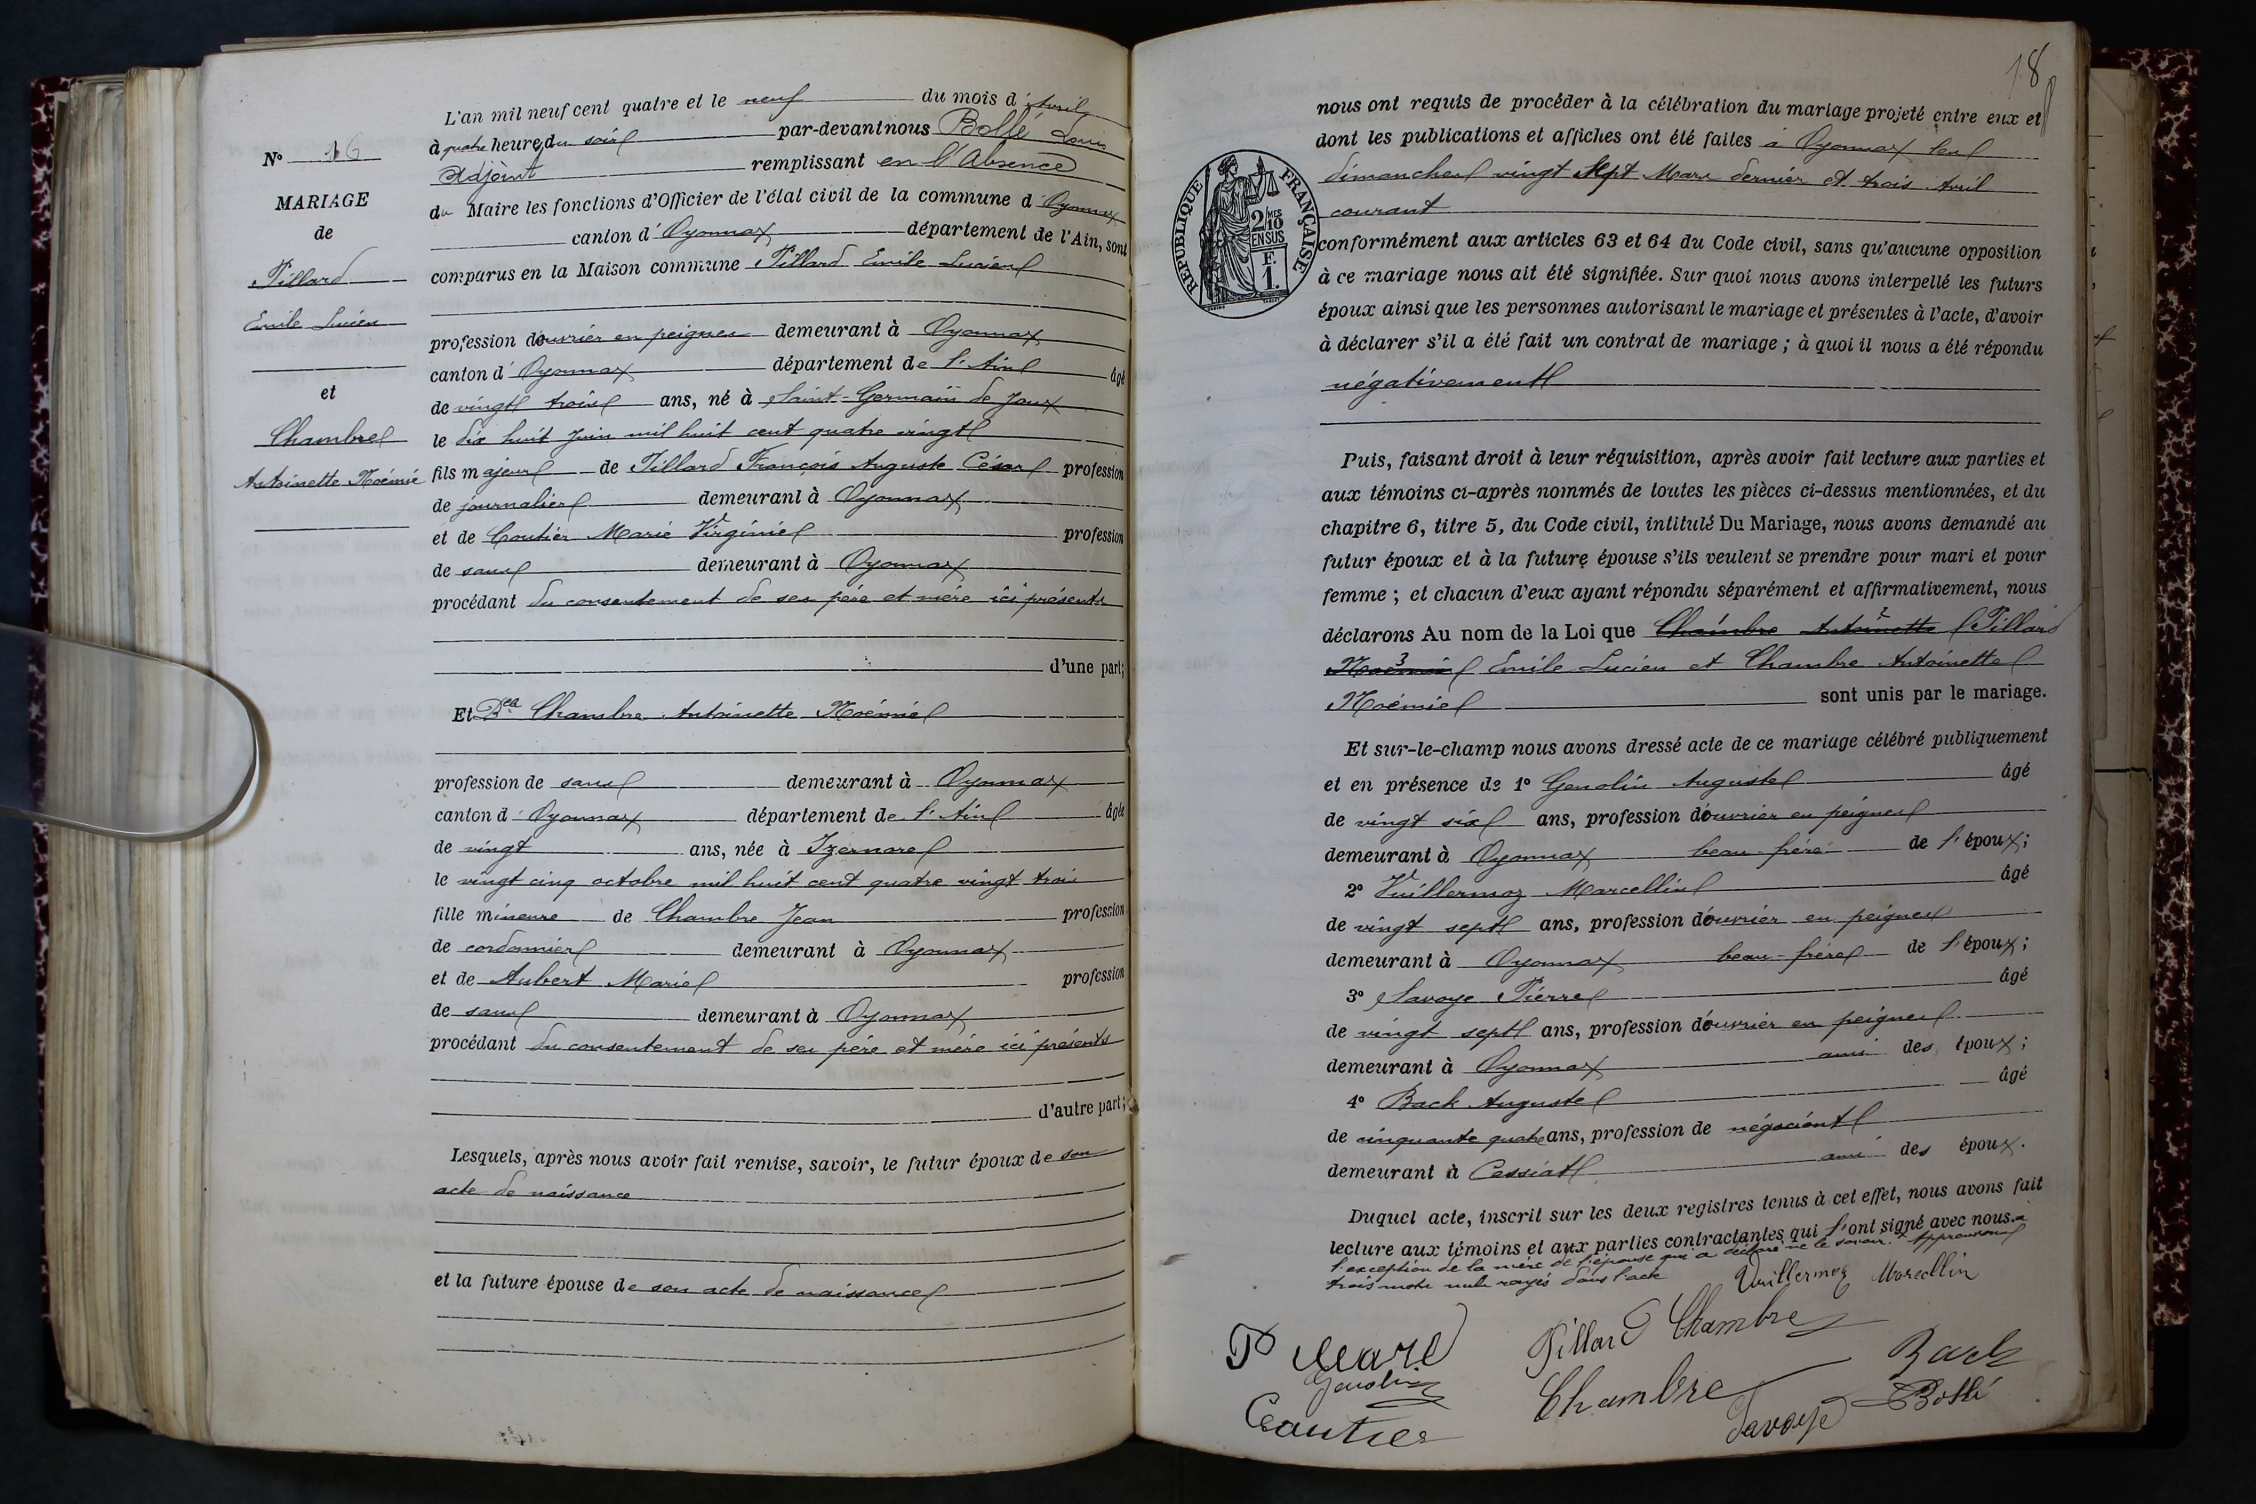 N° 16
MARIAGE
de
Pillard
Emile Lucien
et
Chambre
Antoinette Noémie
L'an mil neuf cent quatre et le neuf du mois d'Avril
à quatre heures du soir par-devant nous Bollé Louis
Adjoint remplissant en l'Absence
du Maire les fonctions d'Officier de l'état civil de la commune d'Oyonnax
canton d'Oyonnax département de l'Ain, sont
comparus en la Maison commune Pillard Emile Lucien
profession d'ouvrier en peignes demeurant à Oyonnax
canton d'Oyonnax département de l'Ain âgé
de vingt trois ans, né à Saint-Germain de Joux
le dix huit Juin mil huit cent quatre vingt
fils majeur de Pillard François Auguste César profession
de journalier demeurant à Oyonnax
et de Coutier Marie Virginie profession
de sans demeurant à Oyonnax
procédant du consentement de ses père et mère ici présents
d'une part;
Et Dlle Chambre Antoinette Noémie
profession de sans demeurant à Oyonnax
canton d'Oyonnax département de l'Ain âgée
de vingt ans, née à Izernore
le vingt cinq octobre mil huit cent quatre vingt trois
fille mineure de Chambre Jean profession
de cordonnier demeurant à Oyonnax
et de Aubert Marie profession
de sans demeurant à Oyonnax
procédant du consentement de ses père et mère ici présents
d'autre part;
Lesquels, après nous avoir fait remise, savoir, le futur époux de son
acte de naissance
et la future épouse de son acte de naissance
18
nous ont requis de procéder à la célébration du mariage projeté entre eux et
dont les publications et affiches ont été faites à Oyonnax les
dimanches vingt sept Mars dernier et trois Avril
courant
RÉPUBLIQUE FRANÇAISE
2/10 MES
EN SUS
F.
1.
conformément aux articles 63 et 64 du Code civil, sans qu'aucune opposition
à ce mariage nous ait été signifiée. Sur quoi nous avons interpellé les futurs
époux ainsi que les personnes autorisant le mariage et présentes à l'acte, d'avoir
à déclarer s'il a été fait un contrat de mariage ; à quoi il nous a été répondu
négativement
Puis, faisant droit à leur réquisition, après avoir fait lecture aux parties et
aux témoins ci-après nommés de toutes les pièces ci-dessus mentionnées, et du
chapitre 6, titre 5, du Code civil, intitulé Du Mariage, nous avons demandé au
futur époux et à la future épouse s'ils veulent se prendre pour mari et pour
femme ; et chacun d'eux ayant répondu séparément et affirmativement, nous
déclarons Au nom de la Loi que Chambre Antoinette Pillard
Noémie Emile Lucien et Chambre Antoinette
Noémie sont unis par le mariage.
Et sur-le-champ nous avons dressé acte de ce mariage célébré publiquement
et en présence de 1° Genolin Auguste âgé
de vingt six ans, profession d'ouvrier en peignes
demeurant à Oyonnax beau-frère de l'époux;
2° Vuillermoz Marcellin âgé
de vingt sept ans, profession d'ouvrier en peignes
demeurant à Oyonnax beau-frère de l'époux;
3° Savoye Pierre âgé
de vingt sept ans, profession d'ouvrier en peignes
demeurant à Oyonnax ami des époux;
4° Back Auguste âgé
de cinquante quatre ans, profession de négociant
demeurant à Cessiat ami des époux.
Duquel acte, inscrit sur les deux registres tenus à cet effet, nous avons fait
lecture aux témoins et aux parties contractantes qui l'ont signé avec nous à
l'exception de la mère de l'épouse qui a déclaré ne le savoir. Approuvons
trois mots nuls rayés dans l'acte
Vuillermoz Marcellin
Pillard Chambre
Genolin
Chambre
Back
Coutier
Savoye
Bollé